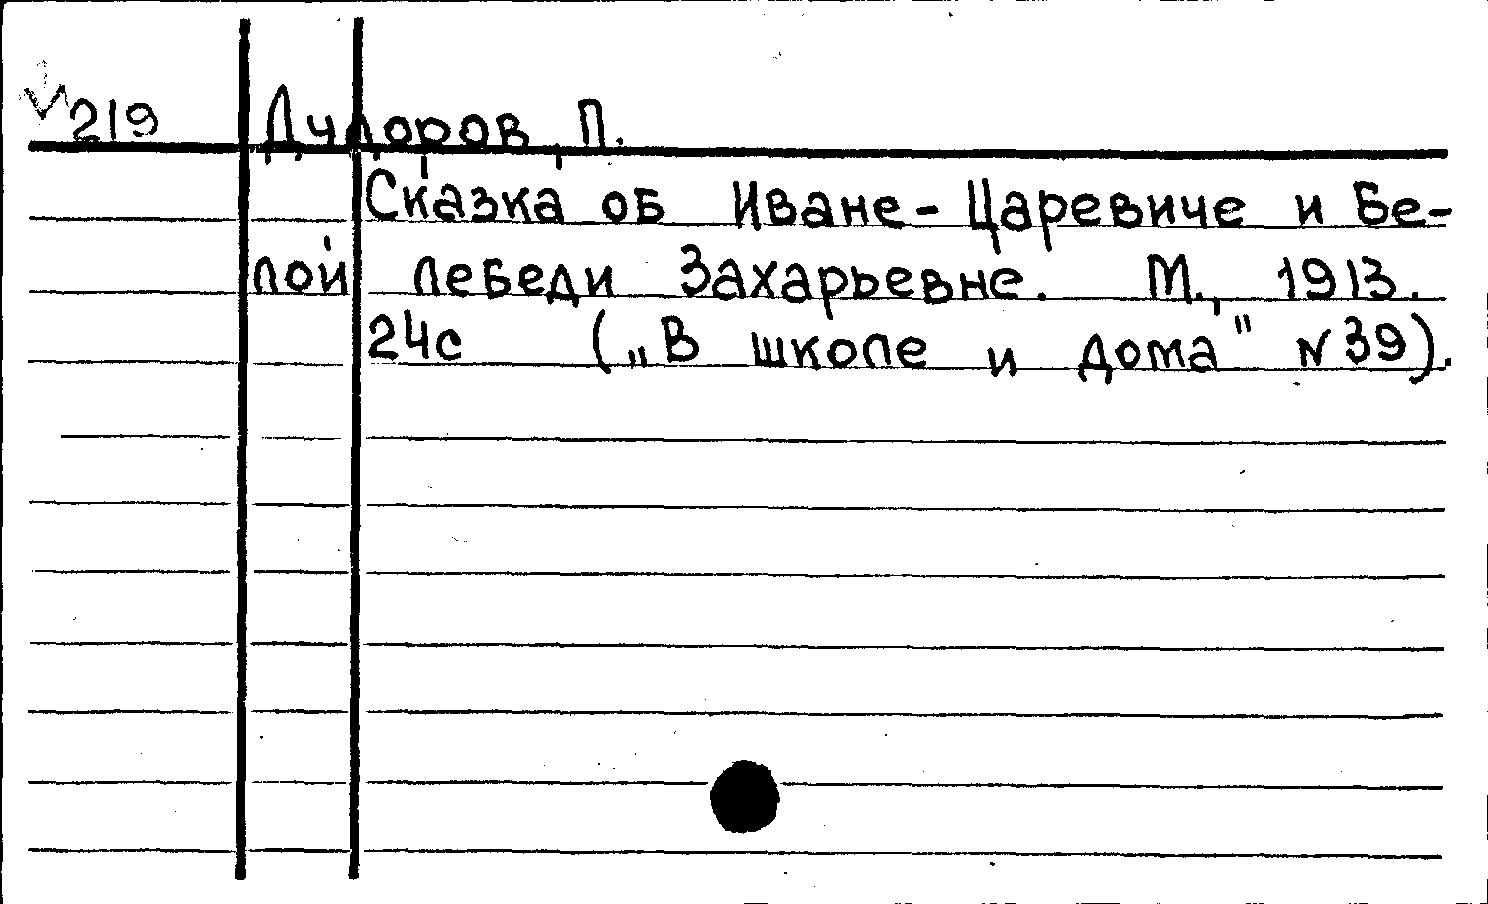 √219 Дудоров, П.
Сказка об Иване-Царевиче и Бе-
лой лебеди Захарьевне. М., 1913.
24с („В школе и дома" N39).